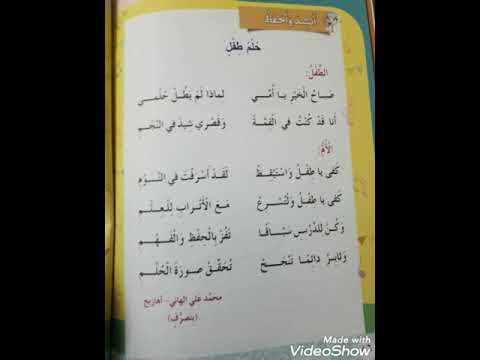 أُنْشِدُ وَأَحْفَظُ
حُلْمُ طِفْلٍ
الطِّفْلُ:
صَبَاحُ الْخَيْرِ يَا أُمِّي لِمَاذَا لَمْ يَطُلْ حُلْمِي
أَنَا قَدْ كُنْتُ فِي الْقِمَّةْ وَقَصْرِي شِيدَ فِي النَّجْمِ
الْأُمُّ:
كَفَى يَا طِفْلُ وَاسْتَيْقِظْ لَقَدْ أَسْرَفْتَ فِي النَّوْمِ
كَفَى يَا طِفْلُ وَلْتُسْرِعْ مَعَ الْأَتْرَابِ لِلْعِلْمِ
وَكُنْ لِلدَّرْسِ سَبَّاقًا تَفُزْ بِالْحِفْظِ وَالْفَهْمِ
وَثَابِرْ دَائِمًا تَنْجَحْ تُحَقِّقْ صُورَةَ الْحُلْمِ
محمّد علي الهاني- أهازيج
(بتصرّف)
Made with
VideoShow